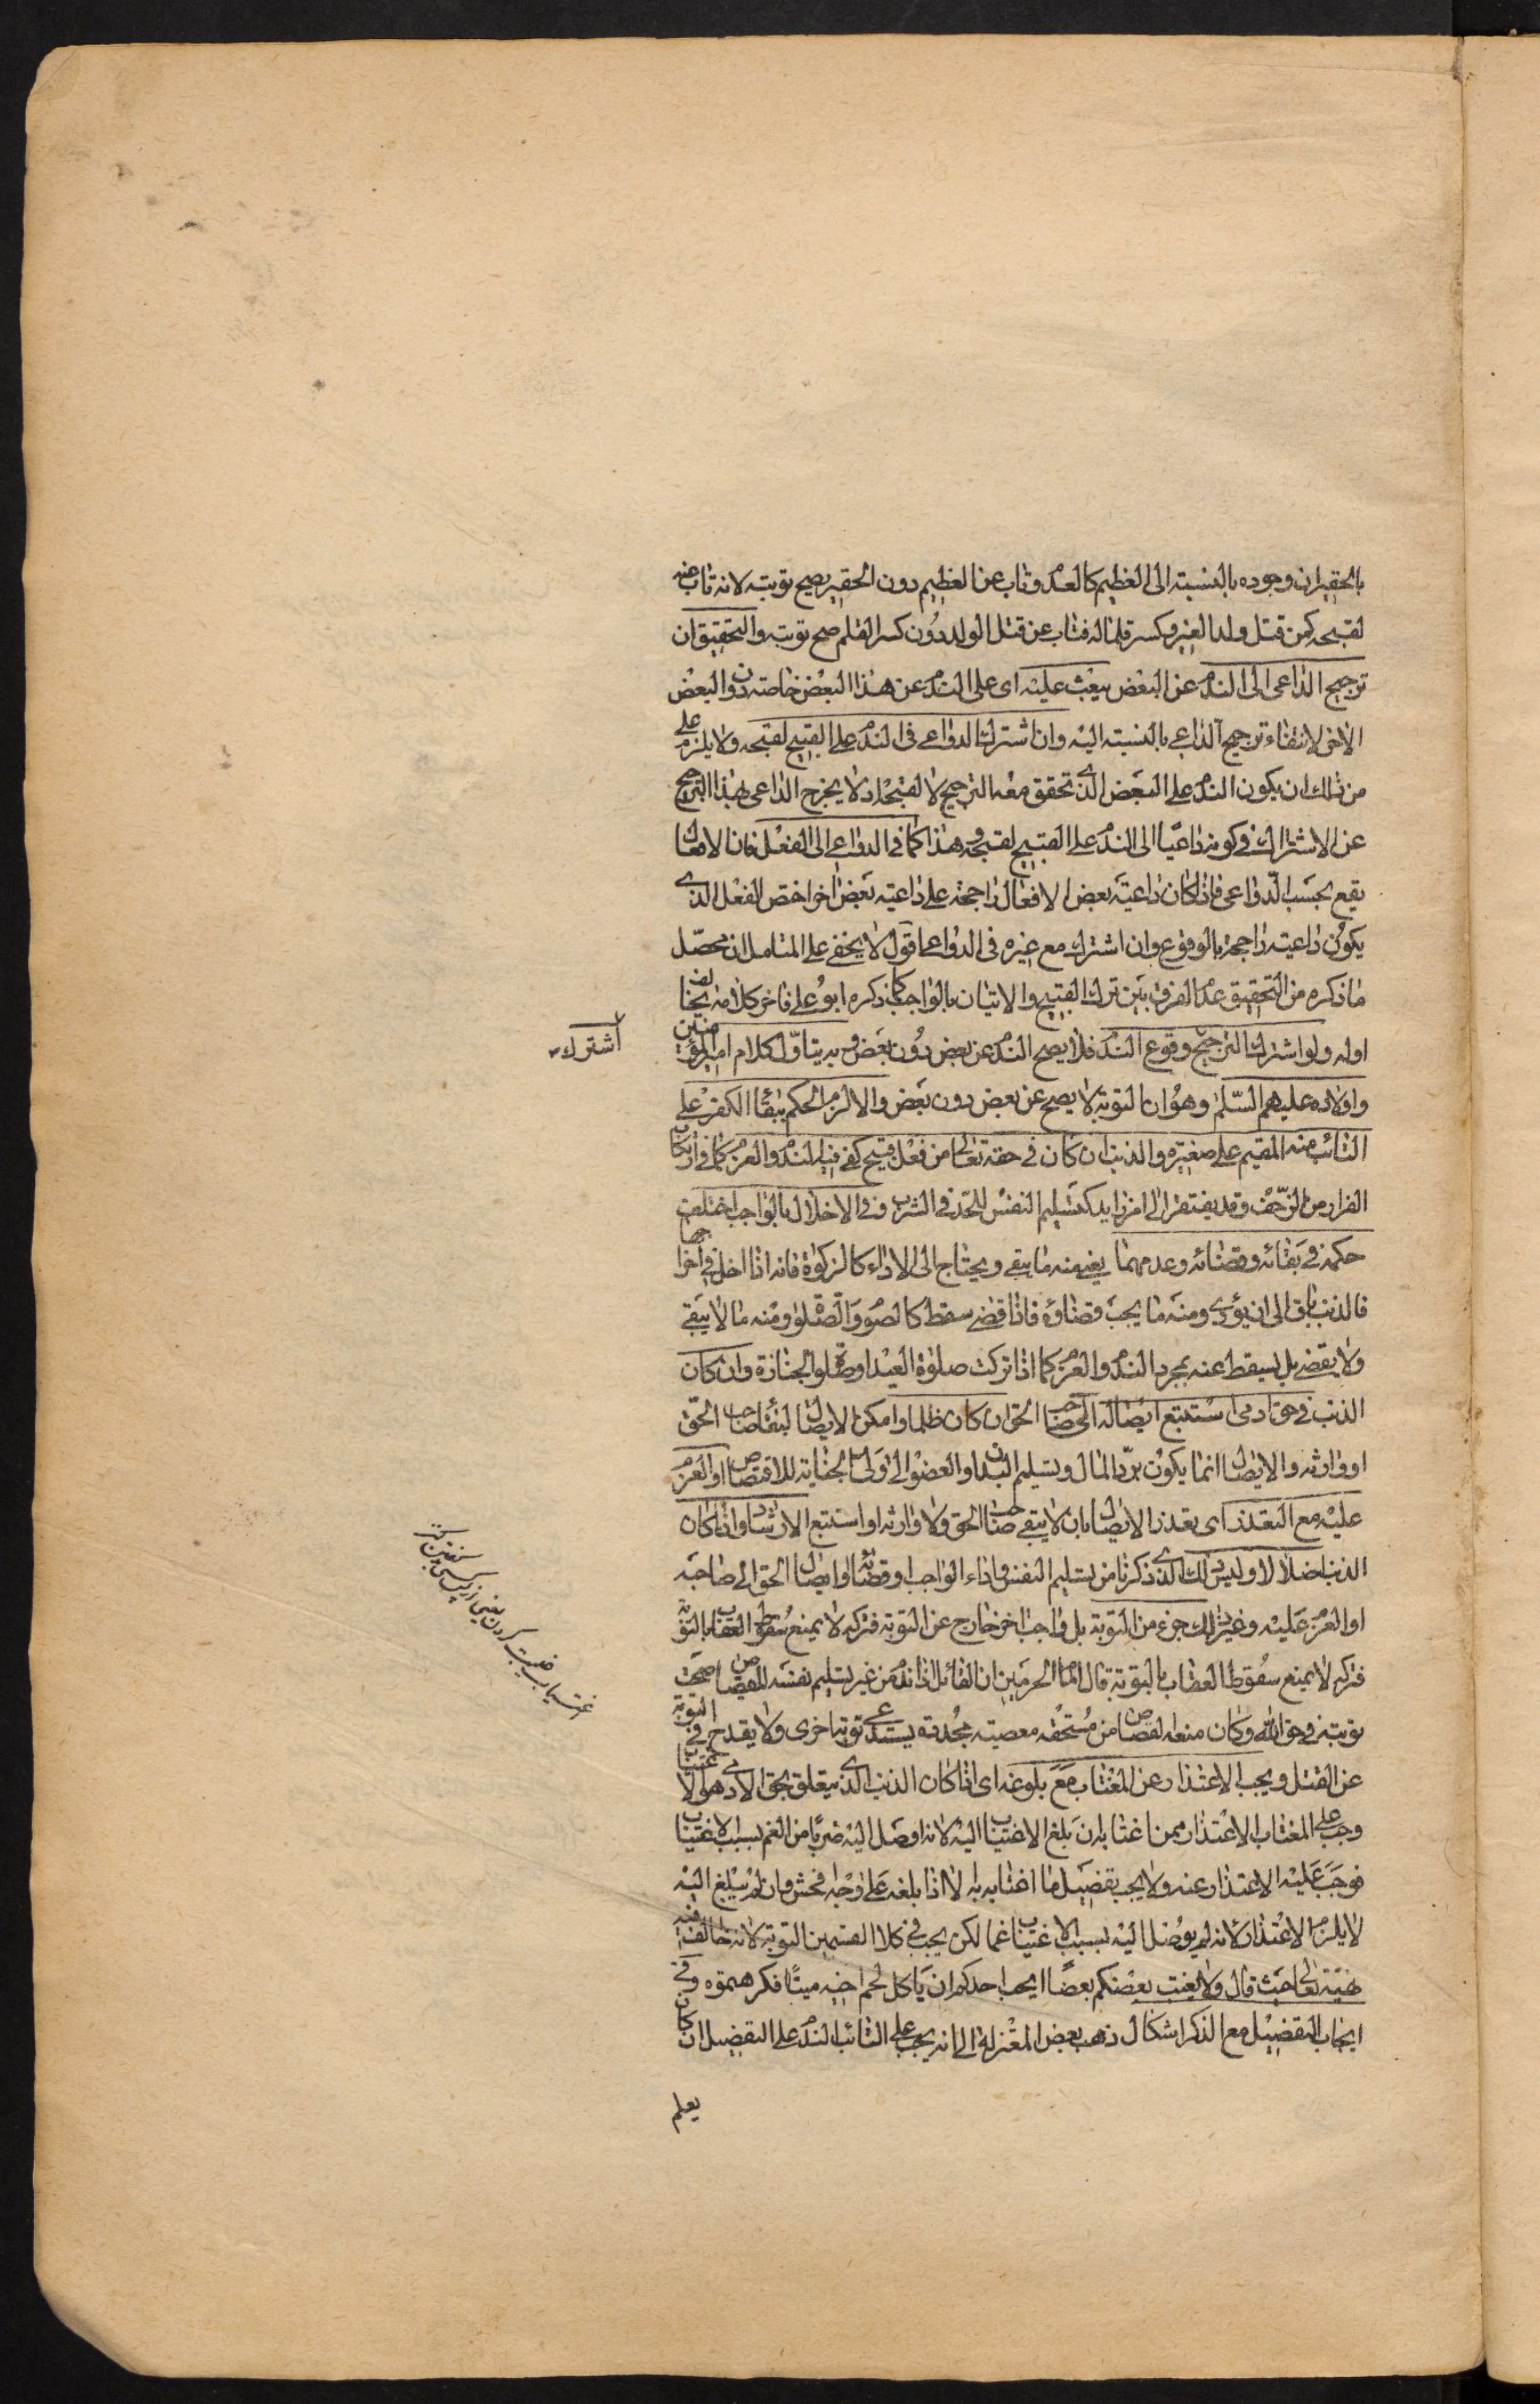 بالحقير ان وجوده بالنسبته الى العظيم كالعدم وتاب عن العظيم دون الحقير يصح توبته لانه تاب عنه
لقبحه كمن قتل ولد الغير وكسر قلما له فتاب عن قتل الولد دون كسر القلم صح توبته والتحقيق ان
ترجيح الداعى الى الندم عن البعض يبعث عليه اى على الندم عن هذا البعض خاصته دون البعض
الاخر لانتفاء ترجيح الداعى بالنسبته اليه وان اشترك الدواعى فى الندم على القبيح لقبحه ولا يلزم على
من ذلك ان يكون الندم على البعض الذى تحقق معه الترجيح لا لقبحه اذ لا يخرج الداعى بهذا الترجيح
عن الاشتراك فى كونه داعيا الى الندم على القبيح لقبحه وهذا كما فى الدواعى الى الفعل فان الافعال
يقع بحسب الدواعى فاذا كان داعية بعض الافعال راجحة على داعيته بعض اخر اختص الفعل الذى
يكون داعيته راجحة بالوقوع وان اشترك مع غيره فى الدواعى اقول لا يخفى على المتامل ان محصّل
ما ذكره من التحقيق عدم الفرق بين ترك القبيح والاتيان بالواجب كما ذكره ابو على فاخر كلامه يخالف
اوله ولو اشترك الترجيح وقوع الندم فلا يصح الندم عن بعض دون بعض وبه يتاوّل كلام امير المؤمنين
واولاده عليهم السّلم وهو ان التوبة لا يصح عن بعض دون بعض والا لزم الحكم ببقاء الكفر على
التائب منه المقيم على صغيره والذنب ان كان فى حقه تعالى من فعل قبيح كفى فيه الندم والعزم كما فى ارتكاب
الفرار من الزحف وقد يفتقر الى امر زايد كتسليم النفس للحد فى الشرب وفى الاخلال بالواجب اختلف
حكمه فى بقائه وقضائه وعدمهما يعنى منه ما يبقى ويحتاج الى الاداء كالزكوة فانه اذا اخل فى اخراجها
فالذنب باق الى ان يؤدى ومنه ما يجب قضاؤه فاذا قضى سقط كالصوم والصلوة ومنه ما لا يبقى
ولا يقضى بل يسقط عنه بمجرد الندم والعزم كما اذا تركت صلوة العيد او صلوة الجنازة وان كان
الذنب فى حق ادمى استتبع ايصاله الى صاحب الحق ان كان ظلما وامكن الايصال لبقاء صاحب الحق
او وارثه والايصال انما يكون بردّ المال وتسليم البدن او العضو الى ولى الجناية للاقتصاص او العزم
عليه مع التعذر اى تعذر الايصال بان لا يبقى صاحب الحق ولا وارثه او استتبع الارشاد ان كان
الذنب اضلالا وليس ذلك الذى ذكرنا من تسليم النفس واداء الواجب او قضائه او ايصال الحق الى صاحبه
او العزم عليه وغير ذلك جزء من التوبة بل واجب اخر خارج عن التوبة فتركه لا يمنع سقوط العقاب بالتوبة
فتركه لا يمنع سقوط العقاب بالتوبة قال امام الحرمين ان القاتل اذا ندم من غير تسليم نفسه للقصاص صحت
توبته فى حق الله وكان منعه القصاص من مستحقه معصيته مجددة يستدعى توبة اخرى ولا يقدح فى التوبة
عن القتل ويجب الاعتذار عن المغتاب مع بلوغه اى اذا كان الذنب الذى يتعلق بحق الادمى هو الاغتياب
وجب على المغتاب الاعتذار ممن اغتابه ان بلغ الاغتياب اليه لانه اوصل اليه ضربا من الغم بسبب الاغتياب
فوجب عليه الاعتذار عنه ولا يجب تفصيل ما اغتابه به الا اذا بلغه على وجه افحش وان لم يبلغ اليه
لا يلزم الاعتذار لانه لم يوصل اليه بسبب الاغتياب غما لكن يجب فى كلا القسمين التوبة لانه خالف فيه
نهيه تعالى حيث قال ولا يغتب بعضكم بعضا ايحب احدكم ان ياكل لحم اخيه ميتا فكرهتموه وفى
ايجاب التفصيل مع الذكر اشكال ذهب بعض المعتزلة الى انه يجب على التائب الندم على التفصيل ان كان
يعلم
اشترك
اغتياب غيبت كردن يعنى از پس كسى سخن